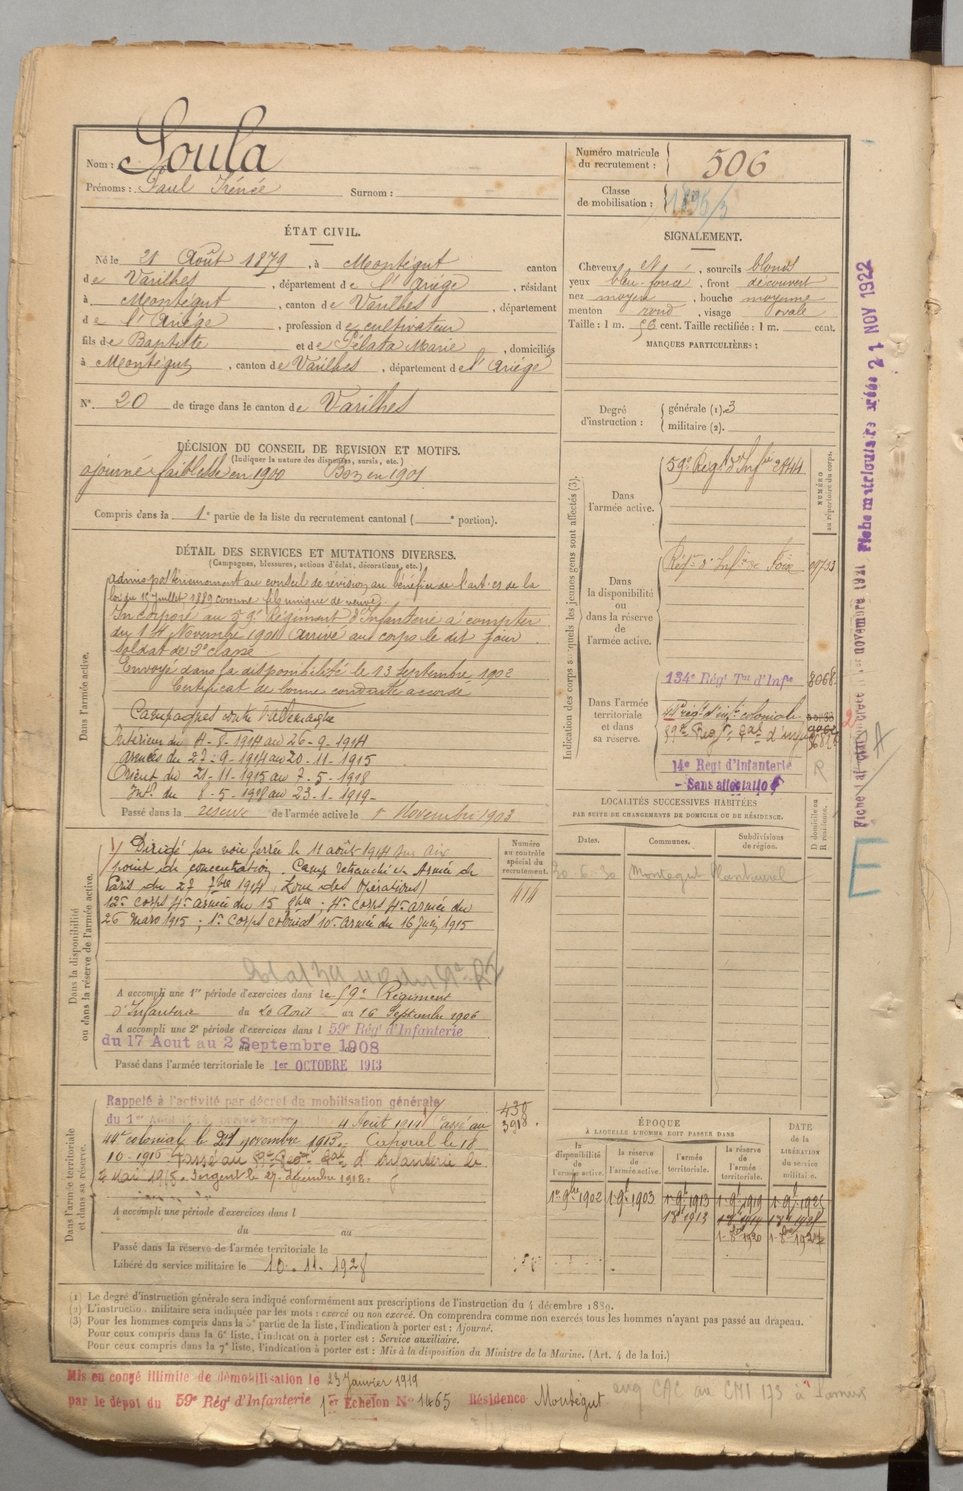 Nom : Soula
Prénoms : Paul Irénée Surnom :
Numéro matricule du recrutement : 506
Classe de mobilisation : 1895/3
ÉTAT CIVIL.
Né le 21 Août 1879, à Montégut canton
de Varilhes, département de l'Ariège, résidant
à Montégut, canton de Varilhes, département
de l'Ariège, profession de cultivateur
fils de Baptiste et de Pélata Marie, domiciliés
à Montégut, canton de Varilhes, département de l'Ariège
N° 20 de tirage dans le canton de Varilhes
SIGNALEMENT.
Cheveux et, sourcils blonds
yeux bleu foncé, front découvert
nez moyen, bouche moyenne
menton rond, visage ovale
Taille : 1 m. 56 cent. Taille rectifiée : 1 m. cent.
MARQUES PARTICULIÈRES :
Degré d'instruction : générale (1) 3
militaire (2).
DÉCISION DU CONSEIL DE REVISION ET MOTIFS.
(Indiquer la nature des dispenses, sursis, etc.)
ajourné faiblesse en 1900 Bon en 1901
Compris dans la 1e partie de la liste du recrutement cantonal ( e portion).
DÉTAIL DES SERVICES ET MUTATIONS DIVERSES.
(Campagnes, blessures, actions d'éclat, décorations, etc.)
Dans l'armée active.
Admis postérieurement au conseil de revision au bénéfice de l'art. de la
loi du 15 juillet 1889 comme fils unique de veuve
Incorporé au 59e Régiment d'Infanterie à compter
du 14 Novembre 1901 Arrivé au corps le dit jour
soldat de 2e classe
Envoyé dans la disponibilité le 13 Septembre 1902
Certificat de bonne conduite accordé
Campagnes contre l'Allemagne
Intérieur du 4-8-1914 au 26-9-1914
armées du 27-9-1914 au 20-11-1915
Orient du 21-11-1915 au 7-5-1918
Int. du 8-5-1918 au 23-1-1919
Passé dans la réserve de l'armée active le 1 Novembre 1903
Dans la disponibilité ou dans la réserve de l'armée active.
Dirigé par voie ferrée le 11 août 1914 sur
point de concentration, Camp retranché
Paris du 27 7bre 1914, Zone des Opérations)
12e corps 4e armée du 15 8bre; 4e corps 4e armée du
26 mars 1915; 1r Corps colonial 10e armée du 16 Juin 1915
Numéro au contrôle spécial du recrutement.
414
A accompli une 1re période d'exercices dans le 59e Régiment
d'Infanterie du 20 Août au 16 Septembre 1906
A accompli une 2e période d'exercices dans l 59e Régt d'Infanterie
du 17 Aout au 2 Septembre 1908
Passé dans l'armée territoriale le 1er OCTOBRE 1913
Dans l'armée territoriale et dans sa réserve.
Rappelé à l'activité par décret de mobilisation générale
du 1er 4 Août 1914 Passé au
44e colonial le 21 novembre 1915. Caporal le 18
10-1916 Passé au d'Infanterie le
Mai 1918. Sergent le 27 décembre 1918.
A accompli une période d'exercices dans l
du au
Passé dans la réserve de l'armée territoriale le
Libéré du service militaire le 10.11.1928
438
3918
Indication des corps auxquels les jeunes gens sont affectés (3).
Dans l'armée active.
59e Régt d'Infie 2844
NUMÉRO au répertoire du corps.
Dans la disponibilité ou dans la réserve de l'armée active.
Régt d'Infie de Foix
Dans l'armée territoriale et dans sa réserve.
134e Régt Tal d'Infie 8068
44e régt d'infie coloniale
14e Régt d'Infanterie
Sans affectation
R
LOCALITÉS SUCCESSIVES HABITÉES
PAR SUITE DE CHANGEMENTS DE DOMICILE OU DE RÉSIDENCE.
Dates. Communes. Subdivisions de région. D domicile ou R résidence.
30.6.30 Montégut Plantaurel
ÉPOQUE
À LAQUELLE L'HOMME DOIT PASSER DANS
la disponibilité de l'armée active. la réserve de l'armée active. l'armée territoriale. la réserve de l'armée territoriale. DATE de la LIBÉRATION du service militaire.
1r 9bre 1902 1r 9bre 1903 1r 9bre 1913 1r 9bre 1919 1r 9bre 1925
1r 8bre 1913 1r 8bre 1919
(1) Le degré d'instruction générale sera indiqué conformément aux prescriptions de l'instruction du 4 décembre 1889.
(2) L'instruction militaire sera indiquée par les mots : exercé ou non exercé. On comprendra comme non exercés tous les hommes n'ayant pas passé au drapeau.
(3) Pour les hommes compris dans la 5e partie de la liste, l'indication à porter est : Ajourné.
Pour ceux compris dans la 6e liste, l'indication à porter est : Service auxiliaire.
Pour ceux compris dans la 7e liste, l'indication à porter est : Mis à la disposition du Ministre de la Marine. (Art. 4 de la loi.)
Mis en congé illimité de démobilisation le 23 Janvier 1919
par le dépot du 59e Régt d'Infanterie 1er Echelon No 1465 Résidence Montégut
Fiche matriculaire créée 21 NOV 1922